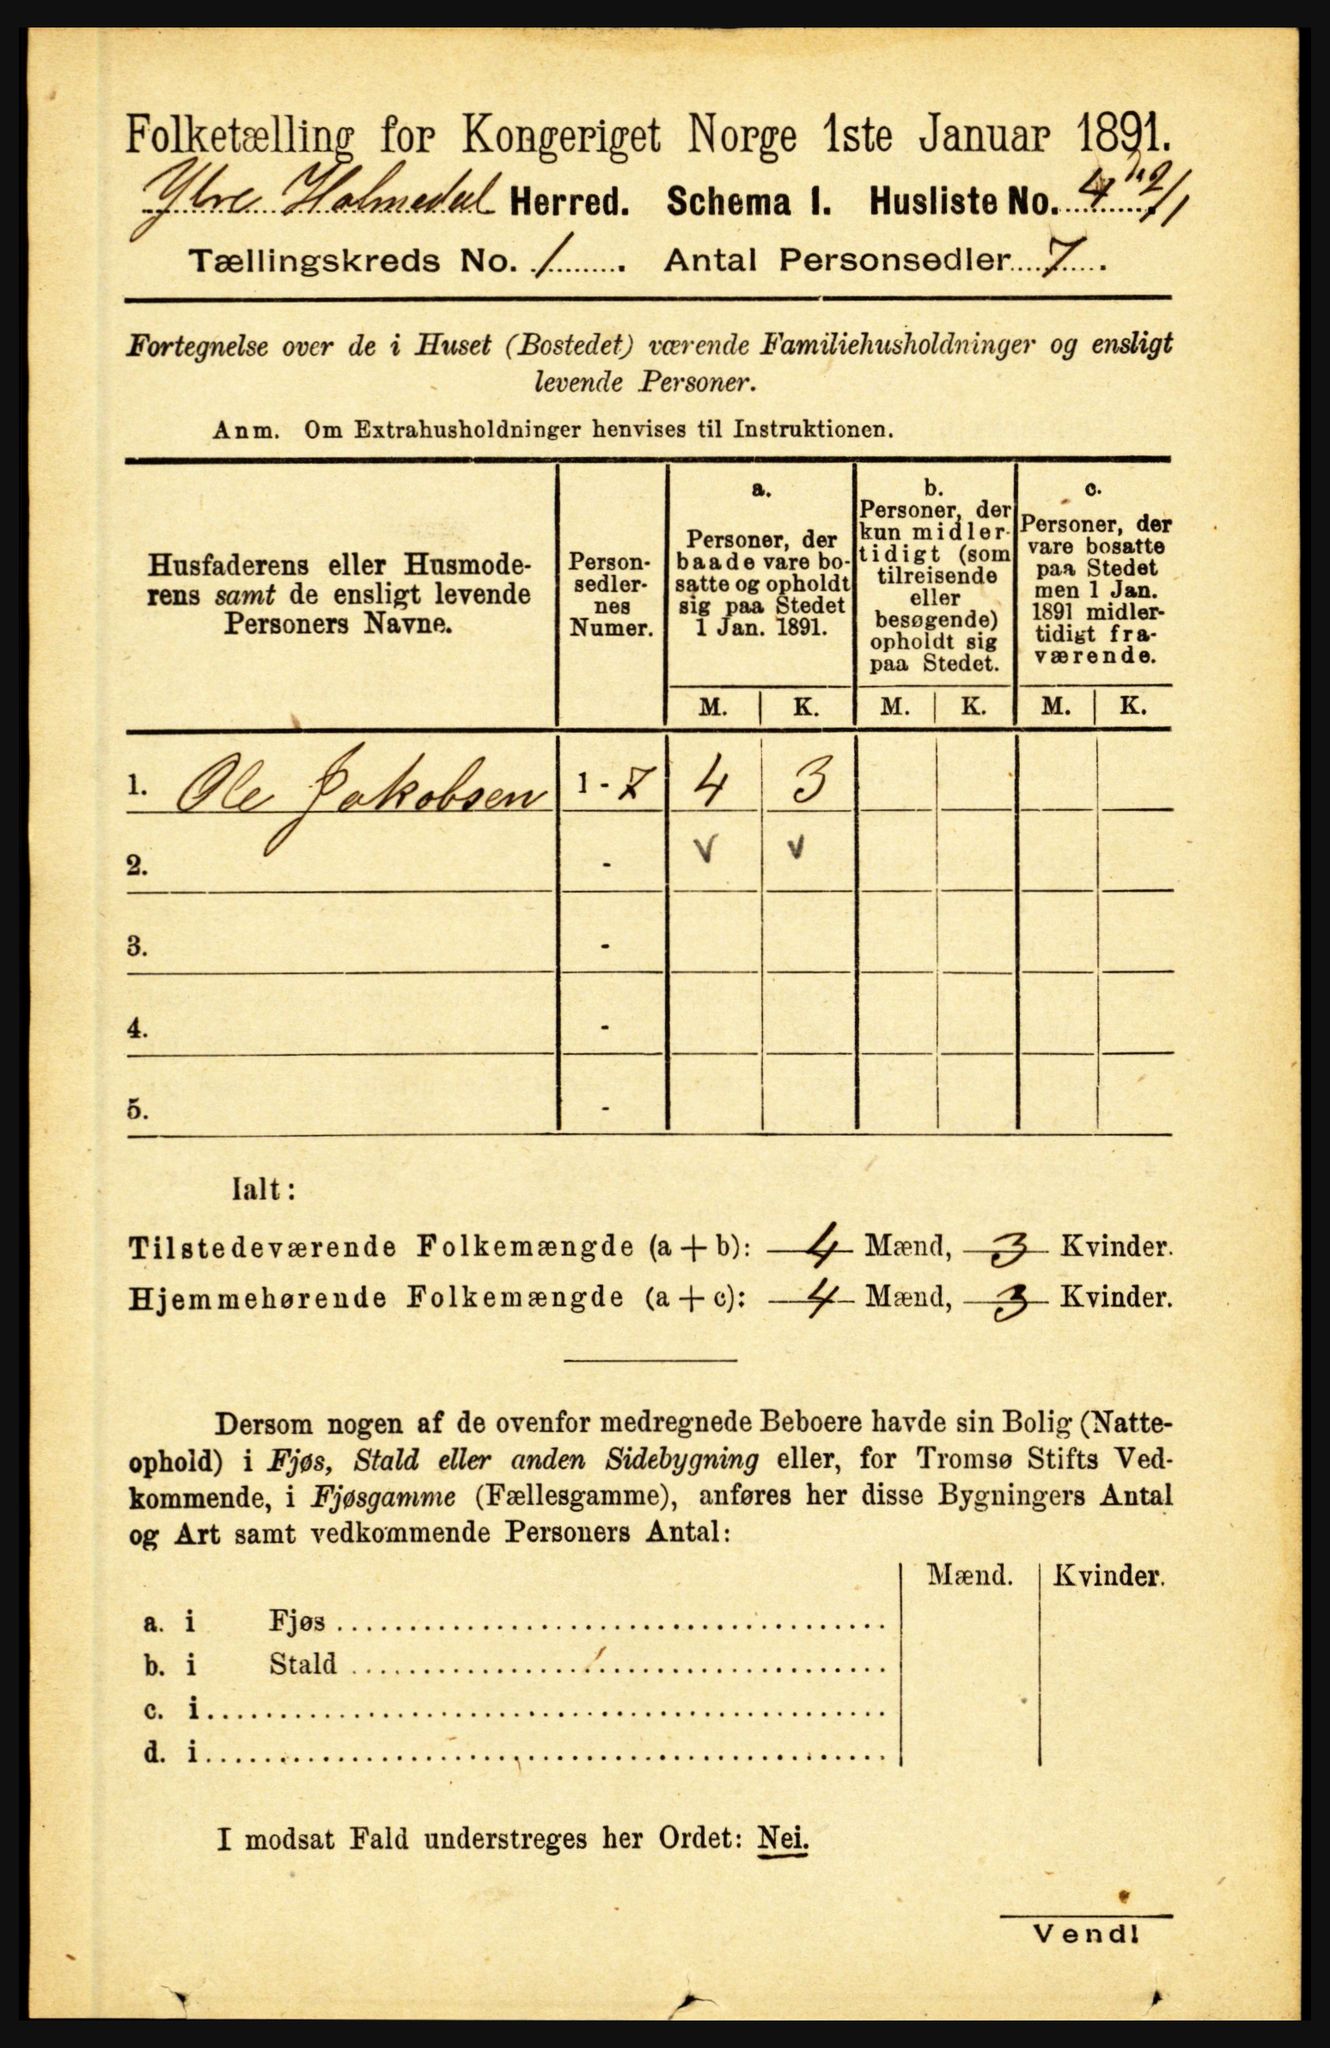 Folketælling for Kongeriget Norge 1ste Januar 1891.
Ytre Holmedal Herred. Schema I. Husliste No. 4
Tællingskreds No. 1. Antal Personsedler 7.
Fortegnelse over de i Huset (Bostedet) værende Familiehusholdninger og ensligt
levende Personer.
Anm. Om Extrahusholdninger henvises til Instruktionen.
Husfaderens eller Husmode-
rens samt de ensligt levende
Personers Navne.
Person-
sedler-
nes
Numer.
a.
Personer, der
baade vare bo-
satte og opholdt
sig paa Stedet
1 Jan. 1891.
b.
Personer, der
kun midler-
tidigt (som
tilreisende
eller
besøgende)
opholdt sig
paa Stedet.
c.
Personer, der
vare bosatte
paa Stedet
men 1 Jan.
1891 midler-
tidigt fra-
værende.
M. K. M. K. M. K.
1. Ole Jakobsen 1 - 7 4 3
2. - v v
3. -
4. -
5. -
Ialt:
Tilstedeværende Folkemængde (a + b): 4 Mænd, 3 Kvinder.
Hjemmehørende Folkemængde (a + c): 4 Mænd, 3 Kvinder.
Dersom nogen af de ovenfor medregnede Beboere havde sin Bolig (Natte-
ophold) i Fjøs, Stald eller anden Sidebygning eller, for Tromsø Stifts Ved-
kommende, i Fjøsgamme (Fællesgamme), anføres her disse Bygningers Antal
og Art samt vedkommende Personers Antal:
Mænd. Kvinder.
a. i Fjøs
b. i Stald
c. i
d. i
I modsat Fald understreges her Ordet: Nei.
Vend!